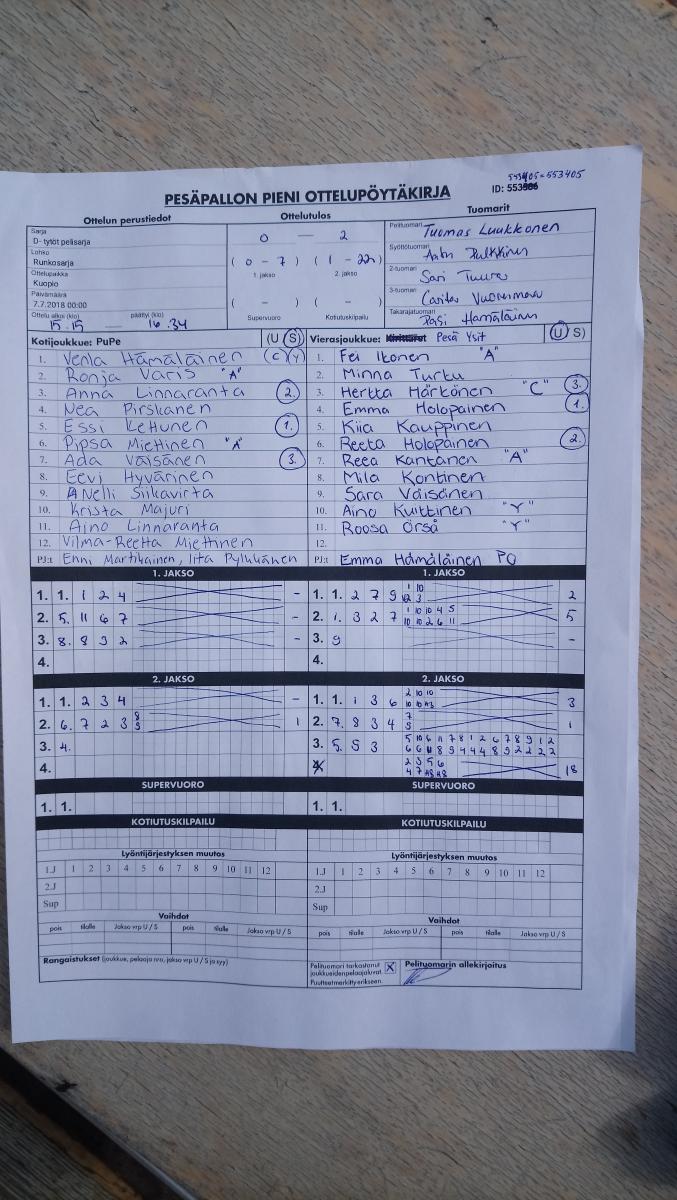 553405=553405
PESÄPALLON PIENI OTTELUPÖYTÄKIRJA ID: 553
Ottelun perustiedot Ottelutulos Tuomarit
Sarja
D- tytöt pelisarja
0 — 2
Pelituomari Tuomas Luukkonen
Lohko
Runkosarja
( 0 - 7 ) ( 1 - 22 )
1. jakso 2. jakso
Syöttötuomari
Ottelupaikka
Kuopio
2-tuomari Sari Tuure
Päivämäärä
7.7.2018 00:00
( - ) ( - )
3-tuomari
Ottelu alkoi (klo) päättyi (klo)
15.15 — 16.34
Supervuoro Kotiutuskilpailu
Takarajatuomari Pasi Hämäläinen
Kotijoukkue: PuPe (U S) Vierasjoukkue: Pesä Ysit (U S)
1. Venla Hämäläinen (C) (Y) 1. Fei Ikonen "A"
2. Ronja Varis "A" 2. Minna Turku
3. Anna Linnaranta 2. 3. Hertta Härkönen "C" 3.
4. Nea Pirskanen 4. Emma Holopainen 1.
5. Essi Kettunen 1. 5. Kiia Kauppinen
6. Pipsa Miettinen "A" 6. Reeta Holopainen 2.
7. Ada Väisänen 3. 7. Reea Kantanen "A"
8. Eevi Hyvärinen 8. Mila Kontinen
9. Nelli Siikavirta 9. Sara Väisänen
10. Krista Majuri 10. Aino Kuittinen "Y"
11. Aino Linnaranta 11. Roosa Örså "Y"
12. Vilma-Reetta Miettinen 12.
PJ:t Enni Martikainen, Iita Pylkkänen PJ:t Emma Hämäläinen PO
1. JAKSO 1. JAKSO
1. 1. 1 2 4 - 1. 1. 2 7 9 1 10 12 3 2
2. 5. 11 6 7 - 2. 1. 3 2 7 1 10 10 4 5 10 10 2 6 11 5
3. 8. 8 9 2 - 3. 9 -
4. 4.
2. JAKSO 2. JAKSO
1. 1. 2 3 4 - 1. 1. 1 3 6 2 10 10 3
2. 6. 7 2 3 8 9 1 2. 7. 8 3 4 7 5 1
3. 4. 3. 5. 5 3 5 10 6 11 7 8 1 2 6 7 8 9 1 2
6 6 11 8 9 4 4 4 8 9 2 2 2 2
4. 2 3 5 6 18
SUPERVUORO SUPERVUORO
1. 1. 1. 1.
KOTIUTUSKILPAILU KOTIUTUSKILPAILU
Lyöntijärjestyksen muutos Lyöntijärjestyksen muutos
1.J 1 2 3 4 5 6 7 8 9 10 11 12 1.J 1 2 3 4 5 6 7 8 9 10 11 12
2.J 2.J
Sup Sup
Vaihdot Vaihdot
pois tilalle Jakso vrp U / S pois tilalle Jakso vrp U / S pois tilalle Jakso vrp U / S pois tilalle Jakso vrp U / S
Rangaistukset (joukkue, pelaaja nro, jakso vrp U / S ja syy)
Pelituomari tarkastanut joukkueidenpelaajaluvat. X Pelituomarin allekirjoitus
Puutteetmerkittyerikseen.